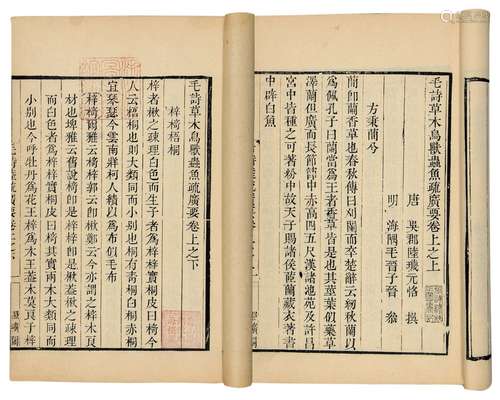 毛詩草木鳥獸蟲魚疏廣要卷上之上
唐 吳郡陸璣元恪 撰
明 海隅毛晉子晉 參
方秉蕑兮
蕑即蘭香草也春秋傳曰刈蘭而卒楚辭云紉秋蘭以
為佩孔子曰蘭當為王者香草皆是也其莖葉似藥草
澤蘭但廣而長節節中赤高四五尺漢諸池苑及許昌
宮中皆種之可著粉中故天子賜諸侯茝蘭藏衣著書
中辟白魚
毛詩草木鳥獸蟲魚疏廣要卷上之下
梓椅梧桐
梓者楸之疎理白色而生子者為梓梓實桐皮曰椅今
人云梧桐也則大類同而小別也桐有青桐白桐赤桐
宜琴瑟今雲南牂柯人績以為布似毛布
梓椅爾雅云椅梓郭云即楸鄭云今亦謂之梓木
材也埤雅云舊說椅即是梓梓即是楸蓋楸之疎理
而白色者為梓梓實桐皮曰椅其實兩木大類同而
小別也今呼牡丹為花王梓為木王蓋木莫良于梓